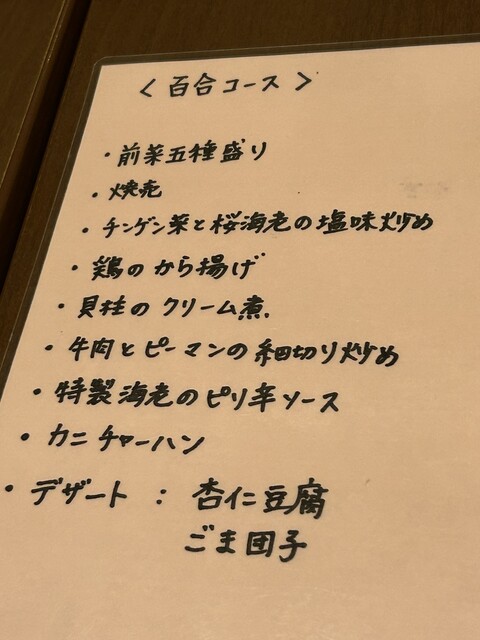 〈 百合コース 〉
・前菜五種盛り
・焼売
・チンゲン菜と桜海老の塩味炒め
・鶏のから揚げ
・貝柱のクリーム煮
・牛肉とピーマンの細切り炒め
・特製海老のピリ辛ソース
・カニチャーハン
・デザート : 杏仁豆腐
ごま団子